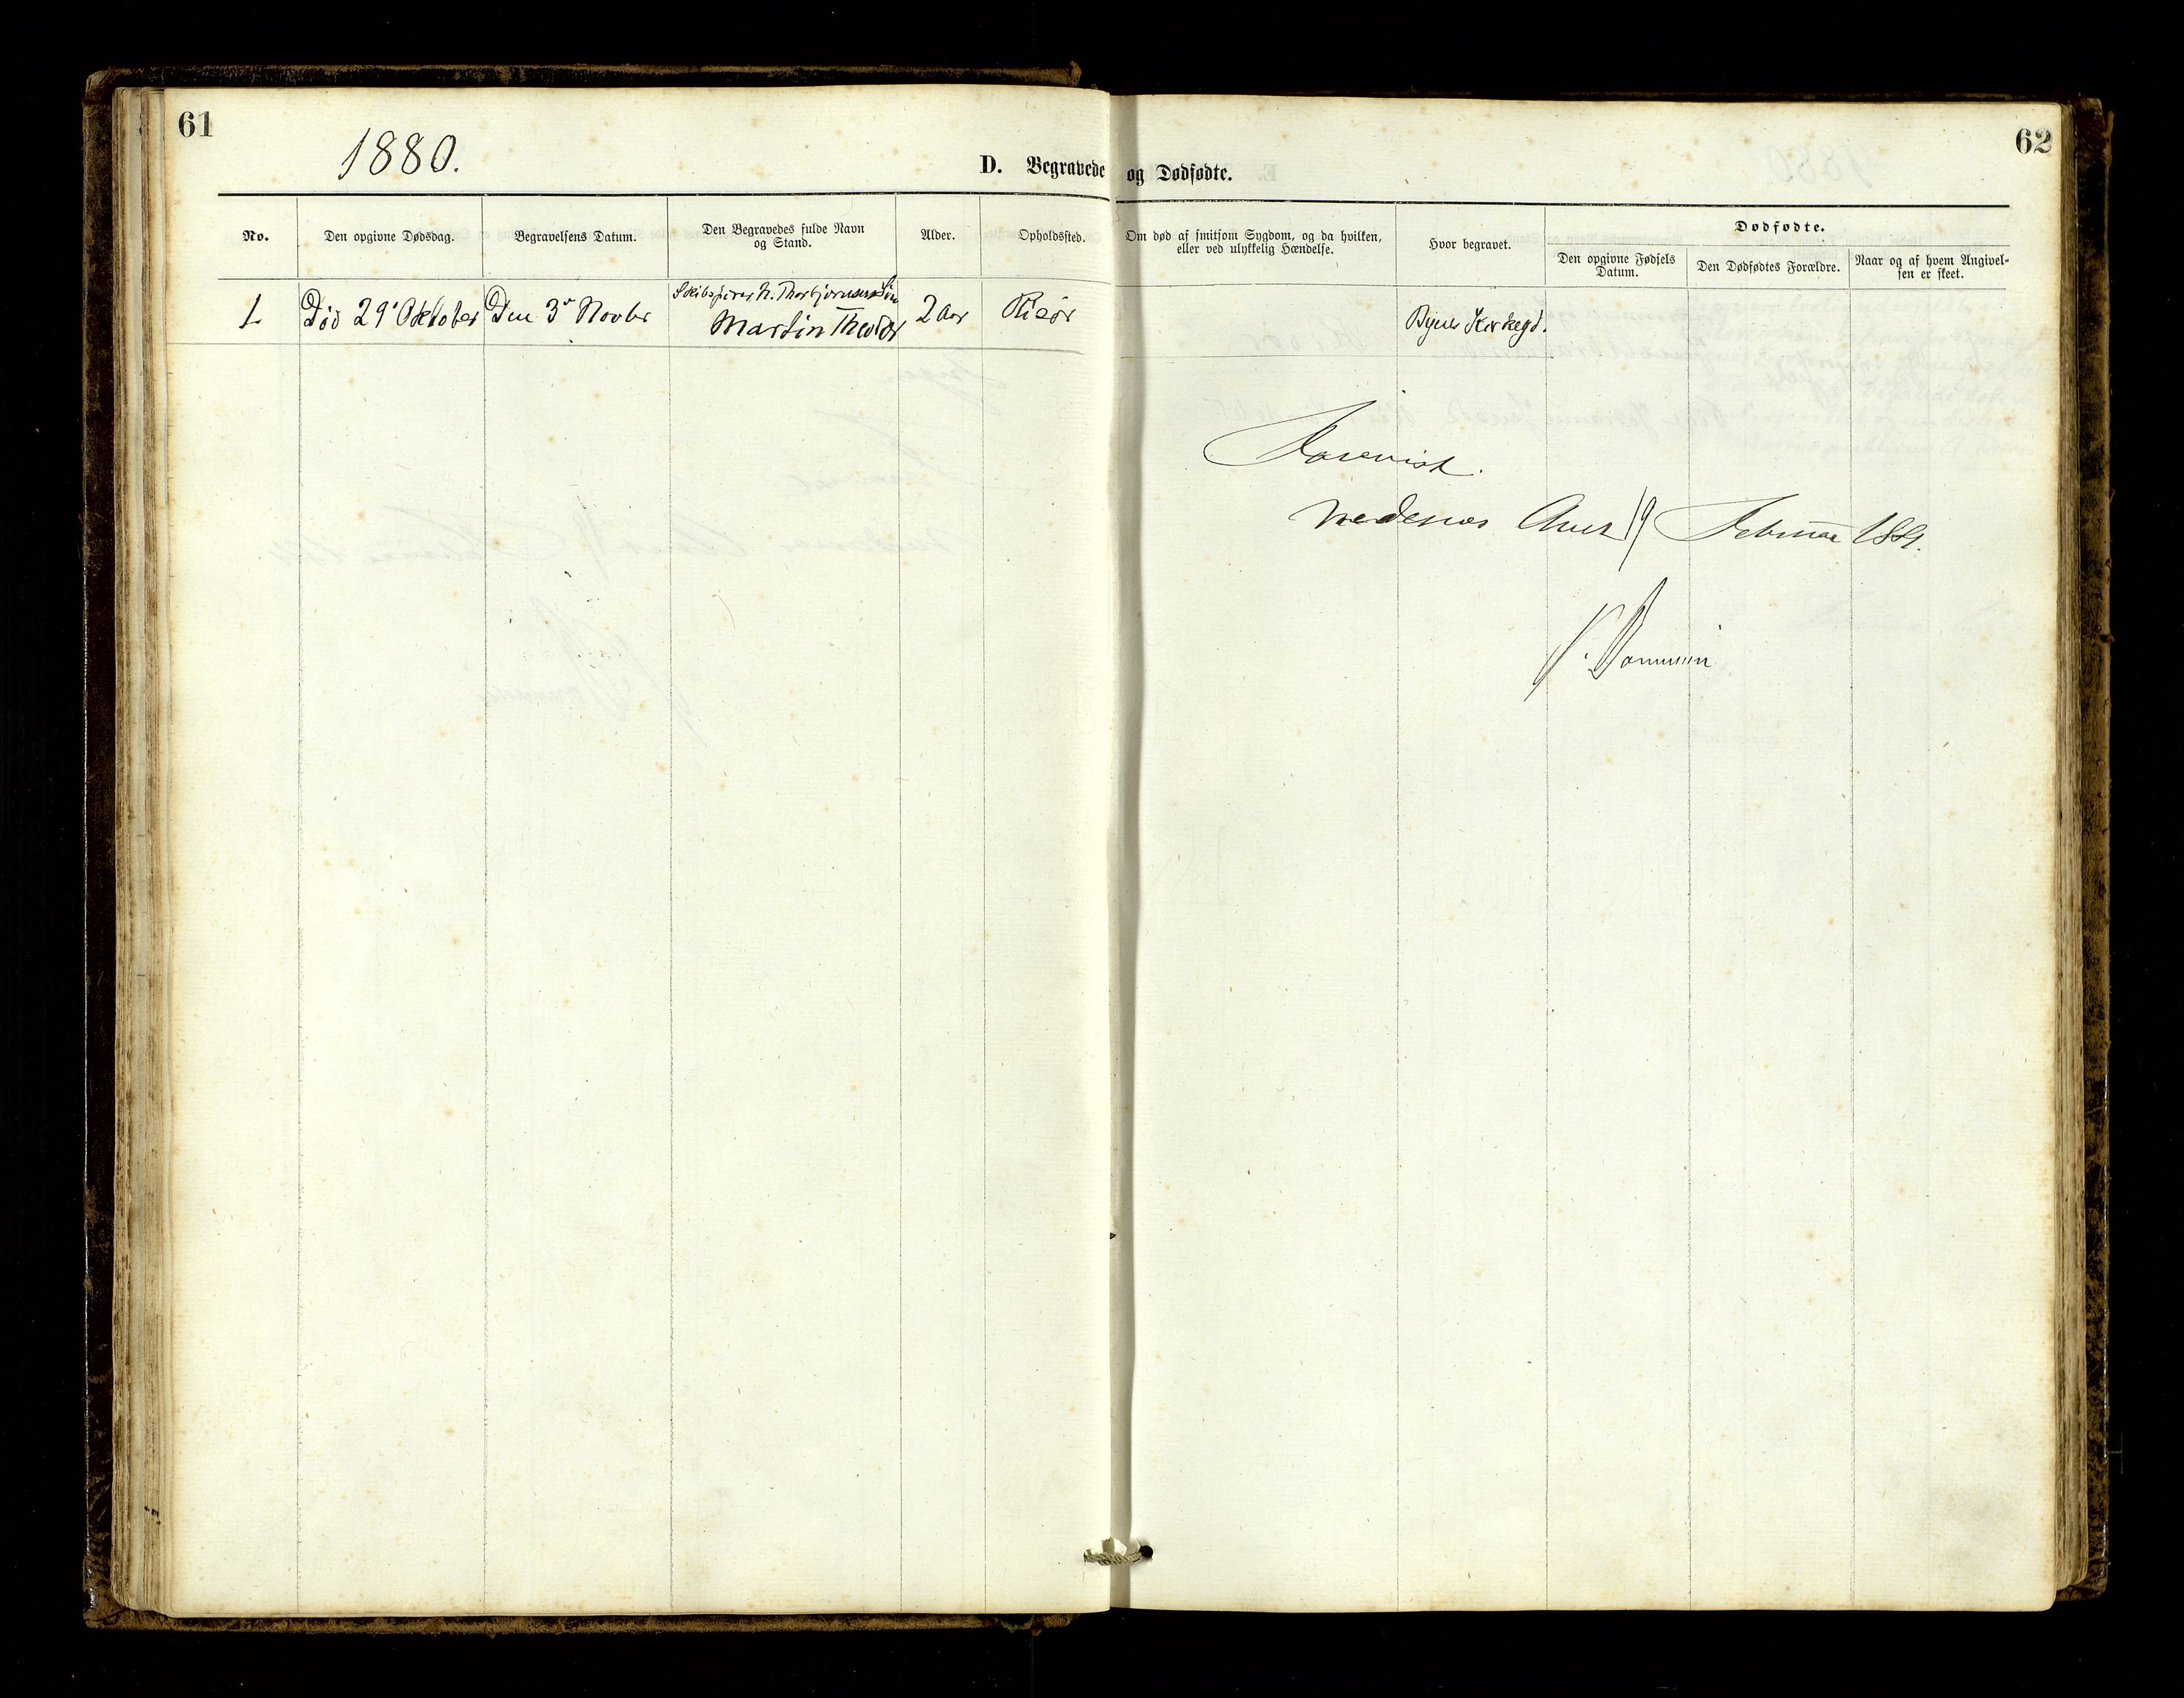 61
62
1880.
D. Begravede og Dødfødte.
No.
Den opgivne Dødsdag.
Begravelsens Datum.
Den Begravedes fulde Navn
og Stand.
Alder.
Opholdssted.
Om død af smitsom Sygdom, og da hvilken,
eller ved ulykkelig Hændelse.
Hvor begravet.
Dødfødte.
Den opgivne Fødsels
Datum.
Den Dødfødtes Forældre.
Naar og af hvem Angivel-
sen er skeet.
1
Død 29' Oktober
Den 3' Novbr
Skibsfører N. Thorbjørnsens Søn
Martin Theodor
2 Aar
Risør
Byens Kirkegd.
Forevist.
Nedenæs Amt 19 Februar 1881.